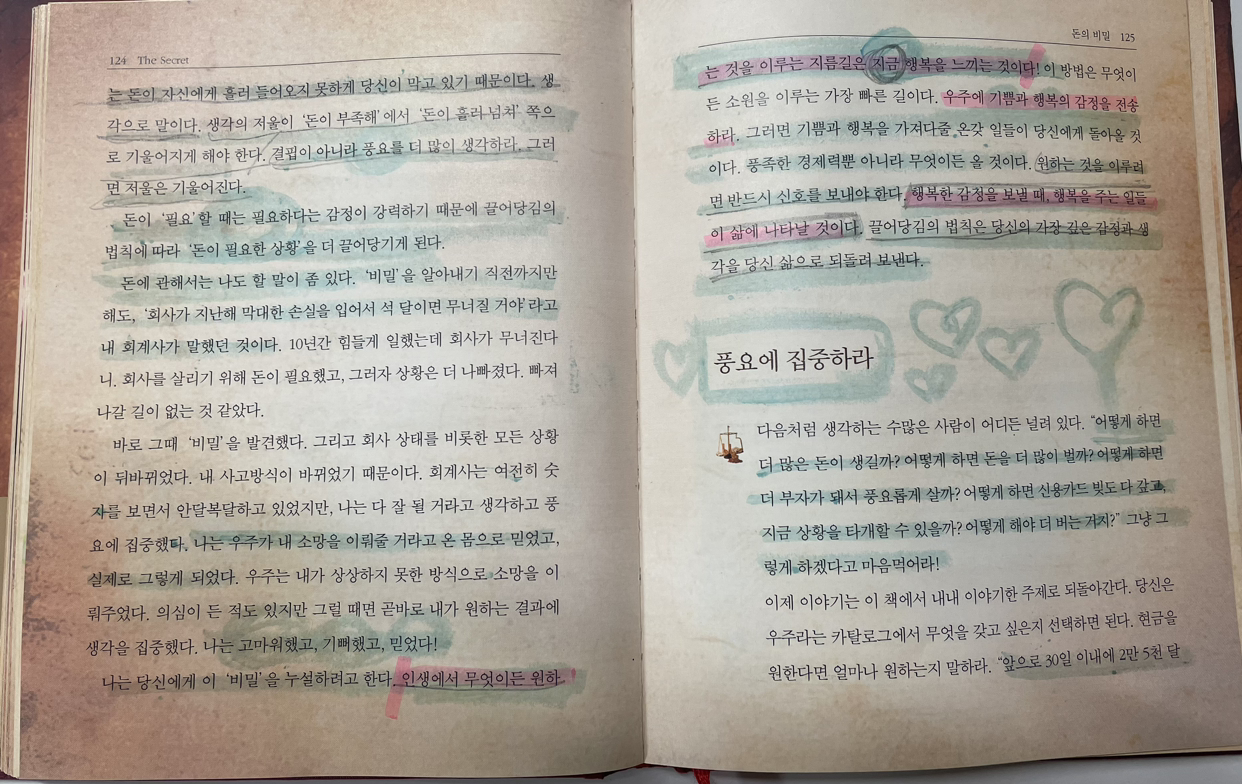 124 The Secret
는 돈이 자신에게 흘러 들어오지 못하게 당신이 막고 있기 때문이다. 생
각으로 말이다. 생각의 저울이 ‘돈이 부족해’에서 ‘돈이 흘러넘쳐’ 쪽으
로 기울어지게 해야 한다. 결핍이 아니라 풍요를 더 많이 생각하라. 그러
면 저울은 기울어진다.
돈이 ‘필요’할 때는 필요하다는 감정이 강력하기 때문에 끌어당김의
법칙에 따라 ‘돈이 필요한 상황’을 더 끌어당기게 된다.
돈에 관해서는 나도 할 말이 좀 있다. ‘비밀’을 알아내기 직전까지만
해도, ‘회사가 지난해 막대한 손실을 입어서 석 달이면 무너질 거야’라고
내 회계사가 말했던 것이다. 10년간 힘들게 일했는데 회사가 무너진다
니. 회사를 살리기 위해 돈이 필요했고, 그러자 상황은 더 나빠졌다. 빠져
나갈 길이 없는 것 같았다.
바로 그때 ‘비밀’을 발견했다. 그리고 회사 상태를 비롯한 모든 상황
이 뒤바뀌었다. 내 사고방식이 바뀌었기 때문이다. 회계사는 여전히 숫
자를 보면서 안달복달하고 있었지만, 나는 다 잘 될 거라고 생각하고 풍
요에 집중했다. 나는 우주가 내 소망을 이뤄줄 거라고 온 몸으로 믿었고,
실제로 그렇게 되었다. 우주는 내가 상상하지 못한 방식으로 소망을 이
뤄주었다. 의심이 든 적도 있지만 그럴 때면 곧바로 내가 원하는 결과에
생각을 집중했다. 나는 고마워했고, 기뻐했고, 믿었다!
나는 당신에게 이 ‘비밀’을 누설하려고 한다. 인생에서 무엇이든 원하
돈의 비밀 125
는 것을 이루는 지름길은 지금 행복을 느끼는 것이다! 이 방법은 무엇이
든 소원을 이루는 가장 빠른 길이다. 우주에 기쁨과 행복의 감정을 전송
하라. 그러면 기쁨과 행복을 가져다줄 온갖 일들이 당신에게 돌아올 것
이다. 풍족한 경제력뿐 아니라 무엇이든 올 것이다. 원하는 것을 이루려
면 반드시 신호를 보내야 한다. 행복한 감정을 보낼 때, 행복을 주는 일들
이 삶에 나타날 것이다. 끌어당김의 법칙은 당신의 가장 깊은 감정과 생
각을 당신 삶으로 되돌려 보낸다.
풍요에 집중하라
다음처럼 생각하는 수많은 사람이 어디든 널려 있다. “어떻게 하면
더 많은 돈이 생길까? 어떻게 하면 돈을 더 많이 벌까? 어떻게 하면
더 부자가 돼서 풍요롭게 살까? 어떻게 하면 신용카드 빚도 다 갚고,
지금 상황을 타개할 수 있을까? 어떻게 해야 더 버는 거지?” 그냥 그
렇게 하겠다고 마음먹어라!
이제 이야기는 이 책에서 내내 이야기한 주제로 되돌아간다. 당신은
우주라는 카탈로그에서 무엇을 갖고 싶은지 선택하면 된다. 현금을
원한다면 얼마나 원하는지 말하라. “앞으로 30일 이내에 2만 5천 달